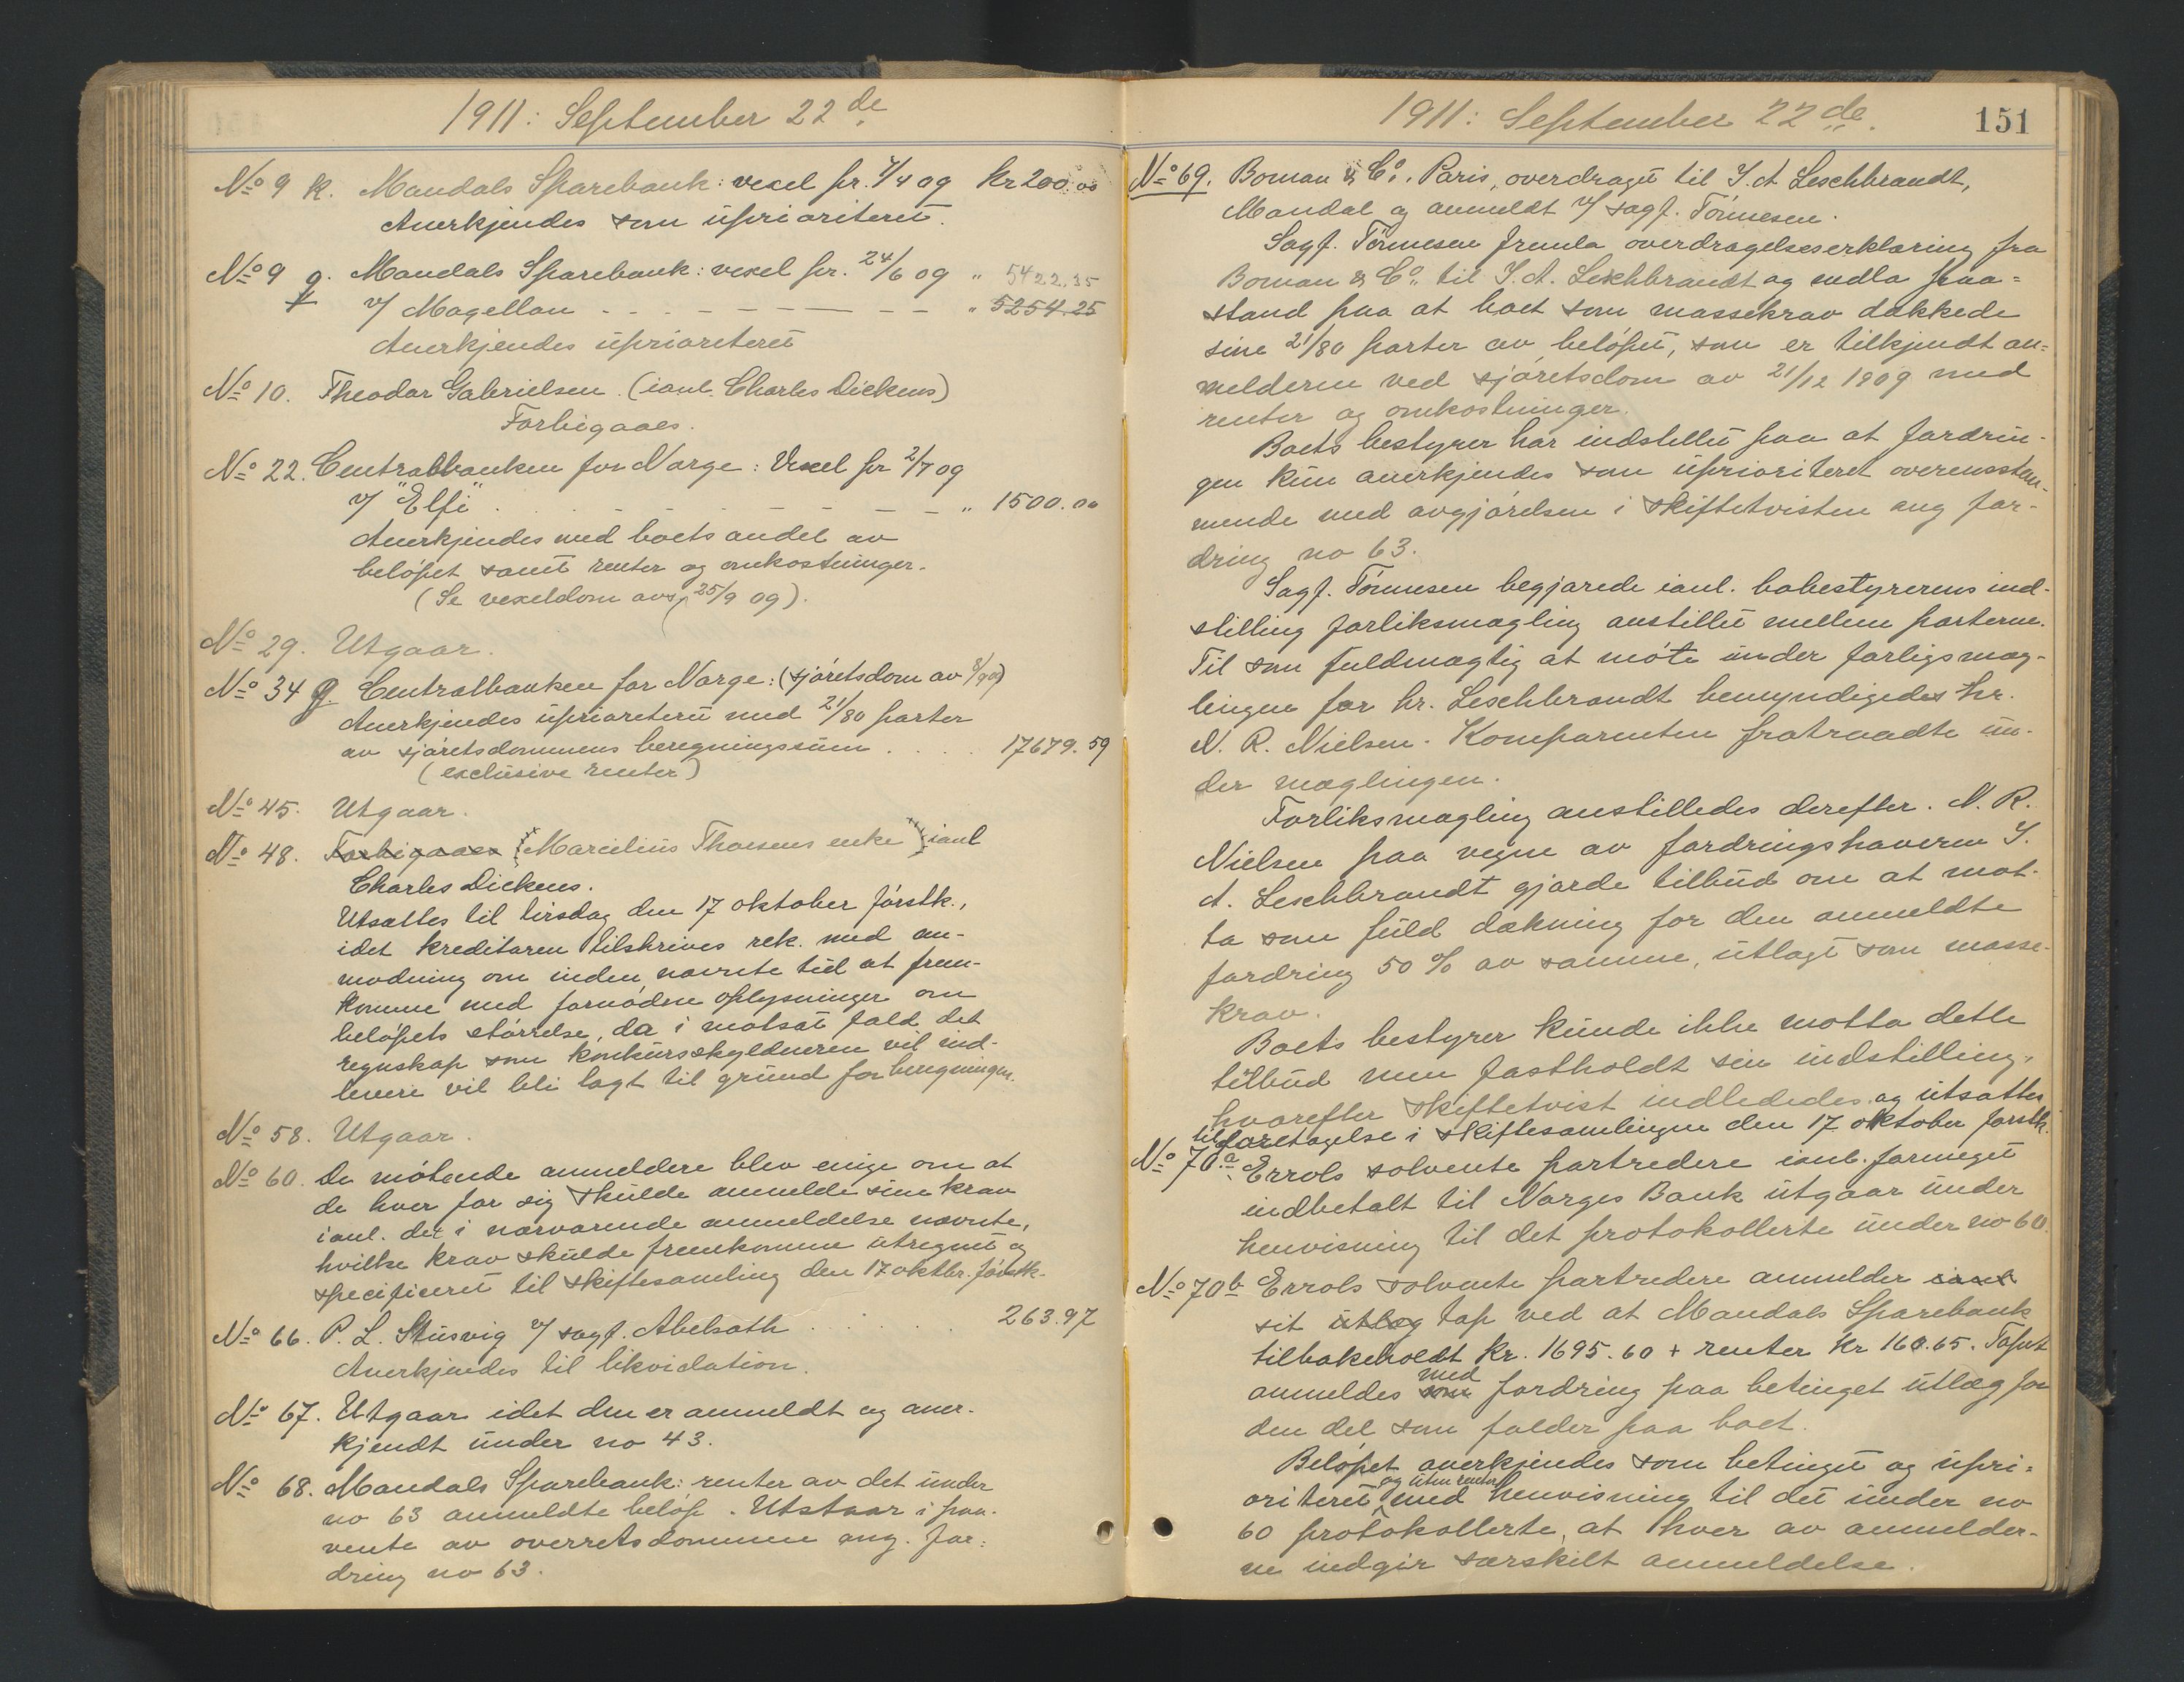 1911: September 22de
No 9 k. Mandals Sparebank: vexel pr. 7/4 09 Kr 200.00
Anerkjendes som uprioriteret.
No 9 q. Mandals Sparebank: vexel pr. 24/6 09 " 5422.35
v/ Magellan - - - - - - - - - " 5254.25
Anerkjendes uprioriteret
No 10. Theodor Gabrielsen. (ianl. Charles Dickens)
Forbigaaes.
No 22. Centralbanken for Norge: Vexel pr 2/7 09
v/ "Elfi" . . - - - - - - - " 1500.00
Anerkjendes med boets andel av
beløpet samt renter og omkostninger.
(Se vexeldom avs. 25/9 09).
No 29. Utgaar.
No 34 q. Centralbanken for Norge: (sjøretsdom av
Anerkjendes uprioriteret med 21/80 parter
av sjøretsdommens beregningssum . . . . 17679.59
(exclusive renter)
No 45. Utgaar.
No 48. Forbigaaes {Marcelius Thorsens enke} ianl
Charles Dickens.
Utsattes til tirsdag den 17 oktober førstk.,
idet kreditoren tilskrives rek. med an-
modning om inden nævnte tid at frem-
komme med fornødne oplysninger om
beløpets størrelse, da i motsat fald det
regnskap som konkursskyldneren vil ind-
levere vil bli lagt til grund for beregningen.
No 58. Utgaar.
No 60. De møtende anmeldere blev enige om at
de hver for sig skulde anmelde sine krav
ianl. det i nærværende anmeldelse nævnte,
hvilke krav skulde fremkomme utregnet og
specificeret til skiftesamling den 17 oktbr. førstk.
No 66. P. L. Stusvig v/ sagf. Abelsøth . . . . 263.97
Anerkjendes til likvidation.
No 67. Utgaar idet den er anmeldt og aner-
kjendt under no 43.
No 68. Mandals Sparebank: renter av det under
no 63 anmeldte beløp. Utstaar i paa-
vente av overretsdommen ang. for-
dring no 63.
1911: September 22de. 151
No 69. Boman & Co., Paris, overdraget til I. A Leschbrandt,
Mandal og anmeldt v/ sagf. Tønnesen.
Sagf. Tønnesen fremla overdragelseserklæring fra
Boman & Co. til I. A. Leschbrandt og nedla paa-
stand paa at boet som massekrav dækkede
sine 21/80 parter av beløpet, som er tilkjendt an-
melderen ved sjøretsdom av 21/12 1909 med
renter og omkostninger.
Boets bestyrer har indstillet paa at fordrin-
gen kun anerkjendes som uprioriteret overensstem-
mende med avgjørelsen i skiftetvisten ang for-
dring no 63.
Sagf. Tønnesen begjærede ianl. bobestyrerens ind-
stilling forliksmægling anstillet mellem parterne.
Til som fuldmægtig at møte under forligsmæg-
lingen for hr. Leschbrandt bemyndigedes hr.
N. R. Nielsen. Komparenten fratraadte un-
der mæglingen.
Forliksmægling anstilledes derefter. N. R.
Nielsen paa vegne av fordringshaveren I.
A. Leschbrandt gjorde tilbud om at mot-
ta som fuld dækning for den anmeldte
fordring 50 % av samme, utlagt som masse-
krav.
Boets bestyrer kunde ikke motta dette
tilbud men fastholdt sin indstilling,
hvorefter skiftetvist indlededes og utsattes
til foretagelse i skiftesamlingen den 17 oktober førstk.
No 70 a. Errols solvente partredere ianl. formeget
indbetalt til Norges Bank utgaar under
henvisning til det protokollerte under no 60.
No 70 b Errols solvente partredere anmelder ianl
sit utlæg tap ved at Mandals Sparebank
tilbakeholdt kr. 1695.60 + renter kr 160.65. Tapet
anmeldes som med fordring paa betinget utlæg for
den del som falder paa boet.
Beløpet anerkjendes som betinget og upri-
oriteret og uten renter med henvisning til det under no
60 protokollerte, at hver av anmelder-
ne indgir særskilt anmeldelse.